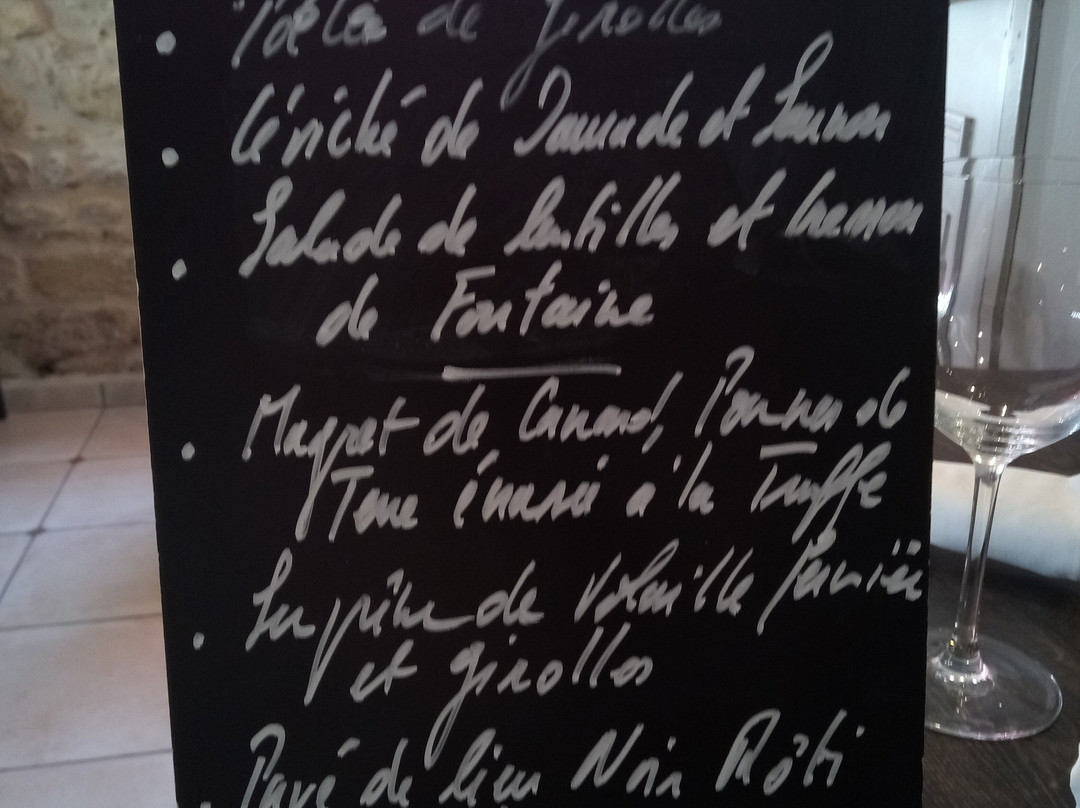 Poêlée de girolles
Céviché de Daurade et Saumon
Salade de lentilles et cresson
de Fontaine
Magret de Canard, Pommes de
Terre écrasée à la Truffe
Suprême de Volaille fermière
et girolles
Pavé de lieu Noir Rôti